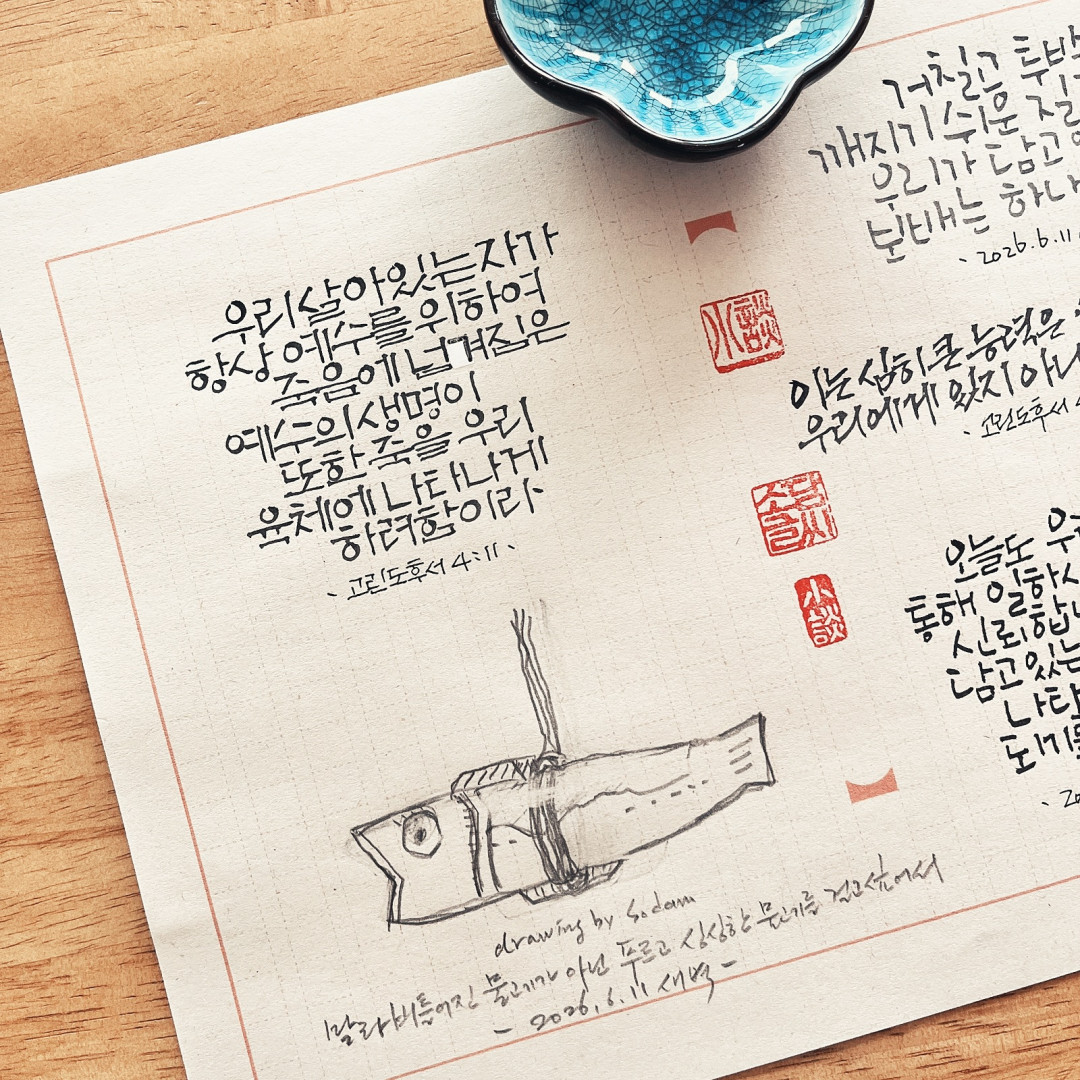 우리 살아있는 자가
항상 예수를 위하여
죽음에 넘겨짐은
예수의 생명이
또한 죽을 우리
육체에 나타나게
하려함이라.
- 고린도후서 4:11 -
drawing by Sodam
말라비틀어진 물고기가 아닌 푸르고 싱싱한 물고기를 걸고싶어서
- 2026.6.11 새벽 -
거칠고 투박
깨지기 쉬운 질
우리가 담고
분배는 하나
· 2026.6.11
小談
이는 심히 큰 능력은
우리에게 있지 아니
· 고린도후서
소담
글씨
小談
오늘도 우리
통해 일하시
신뢰합니
담고 있는
나타
도기